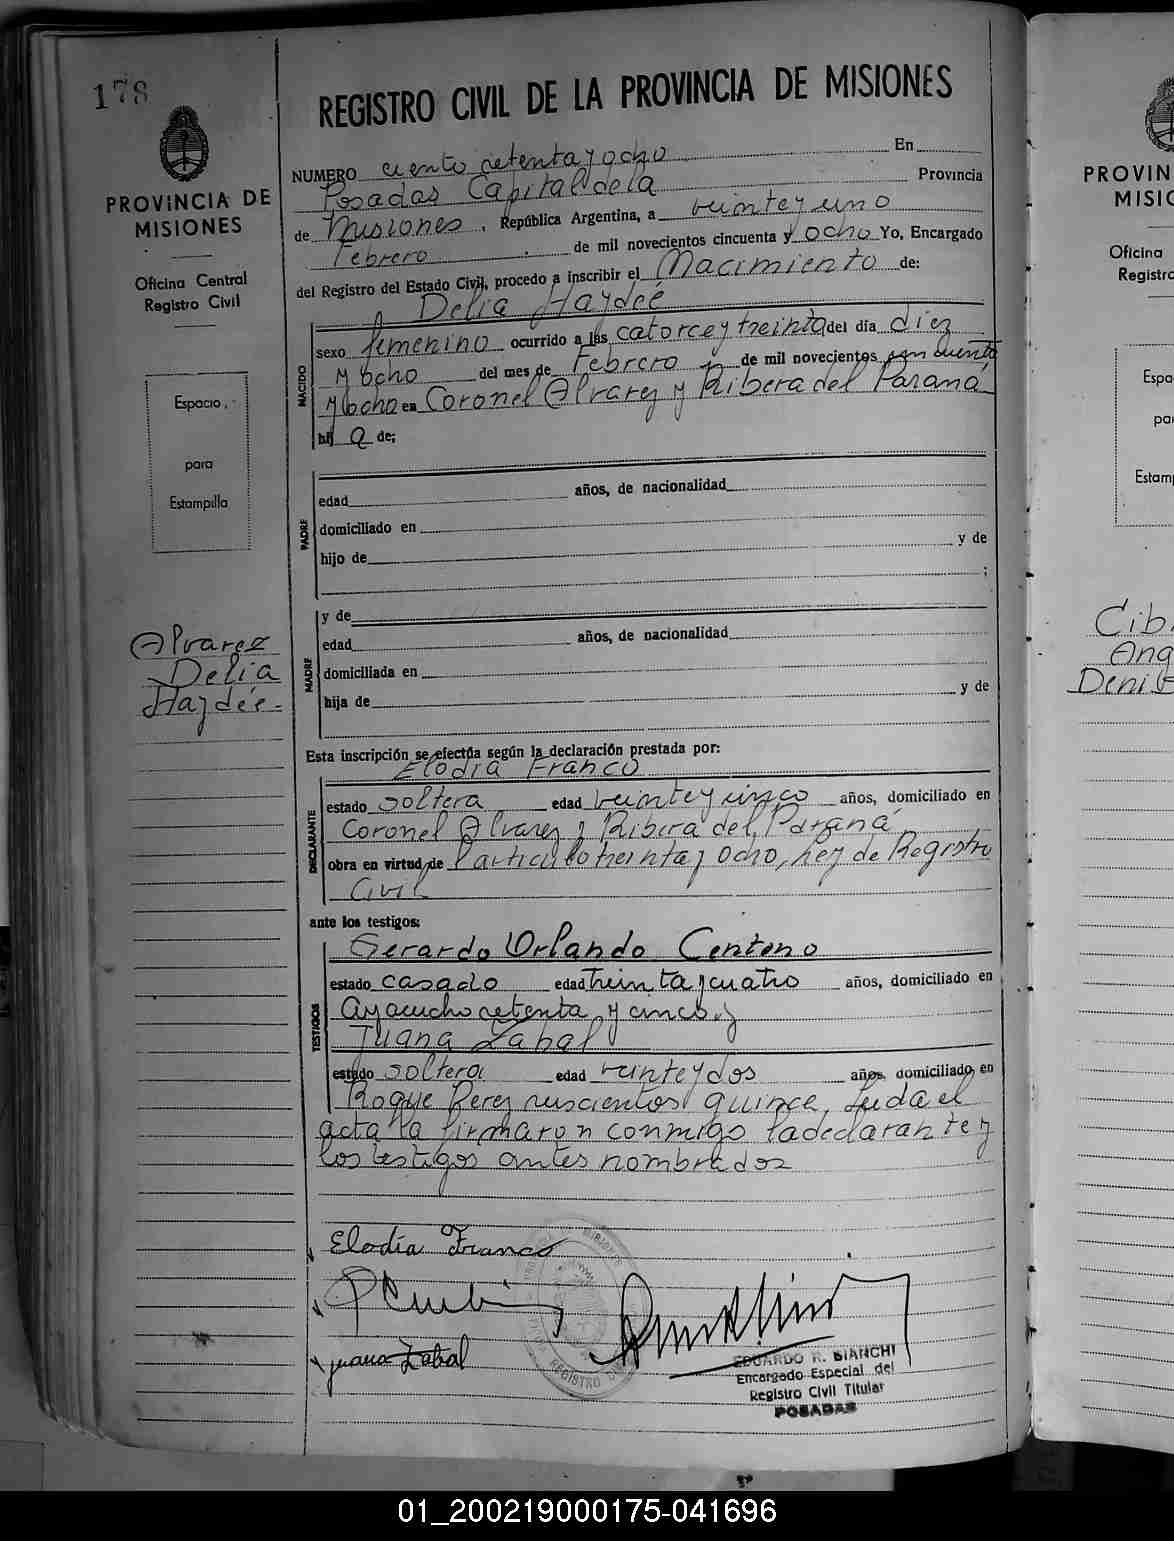 178
PROVINCIA DE
MISIONES
Oficina Central
Registro Civil
Espacio
para
Estampilla
Alvarez
Delia
Haydée.-
REGISTRO CIVIL DE LA PROVINCIA DE MISIONES
NUMERO ciento setenta y ocho En
Posadas Capital de la Provincia
de Misiones, República Argentina, a veinte y uno
Febrero de mil novecientos cincuenta y ocho Yo, Encargado
del Registro del Estado Civil, procedo a inscribir el Nacimiento de:
Delia Haydeé
NACIDO
sexo femenino ocurrido a las catorce y treinta del día diez
y ocho del mes de Febrero de mil novecientos cincuenta
y ocho en Coronel Alvarez y Ribera del Paraná
hij a de:
PADRE
edad años, de nacionalidad
domiciliado en
hijo de y de
;
MADRE
y de
edad años, de nacionalidad
domiciliada en
hija de y de
Esta inscripción se efectúa según la declaración prestada por:
Elodia Franco
DECLARANTE
estado soltera edad veinte y cinco años, domiciliado en
Coronel Alvarez y Ribera del Paraná
obra en virtud de l'articulo treinta y ocho, ley de Registro
Civil
ante los testigos:
TESTIGOS
Gerardo Orlando Centeno
estado casado edad treinta y cuatro años, domiciliado en
Ayacucho setenta y cinco y
Juana Zabal
estado soltera edad veinte y dos años, domiciliado en
Roque Perez quince, Leida el
acta la firmaron conmigo la declarante y
los testigos antes nombrados
Elodia Franco
Juana Zabal
REGISTRO
EDUARDO R. BIANCHI
Encargado Especial del
Registro Civil Titular
POSADAS
PROVIN
MISIO
Oficina
Registro
Espa
pa
Estam
Cib
Ang
Deni
01_200219000175-041696